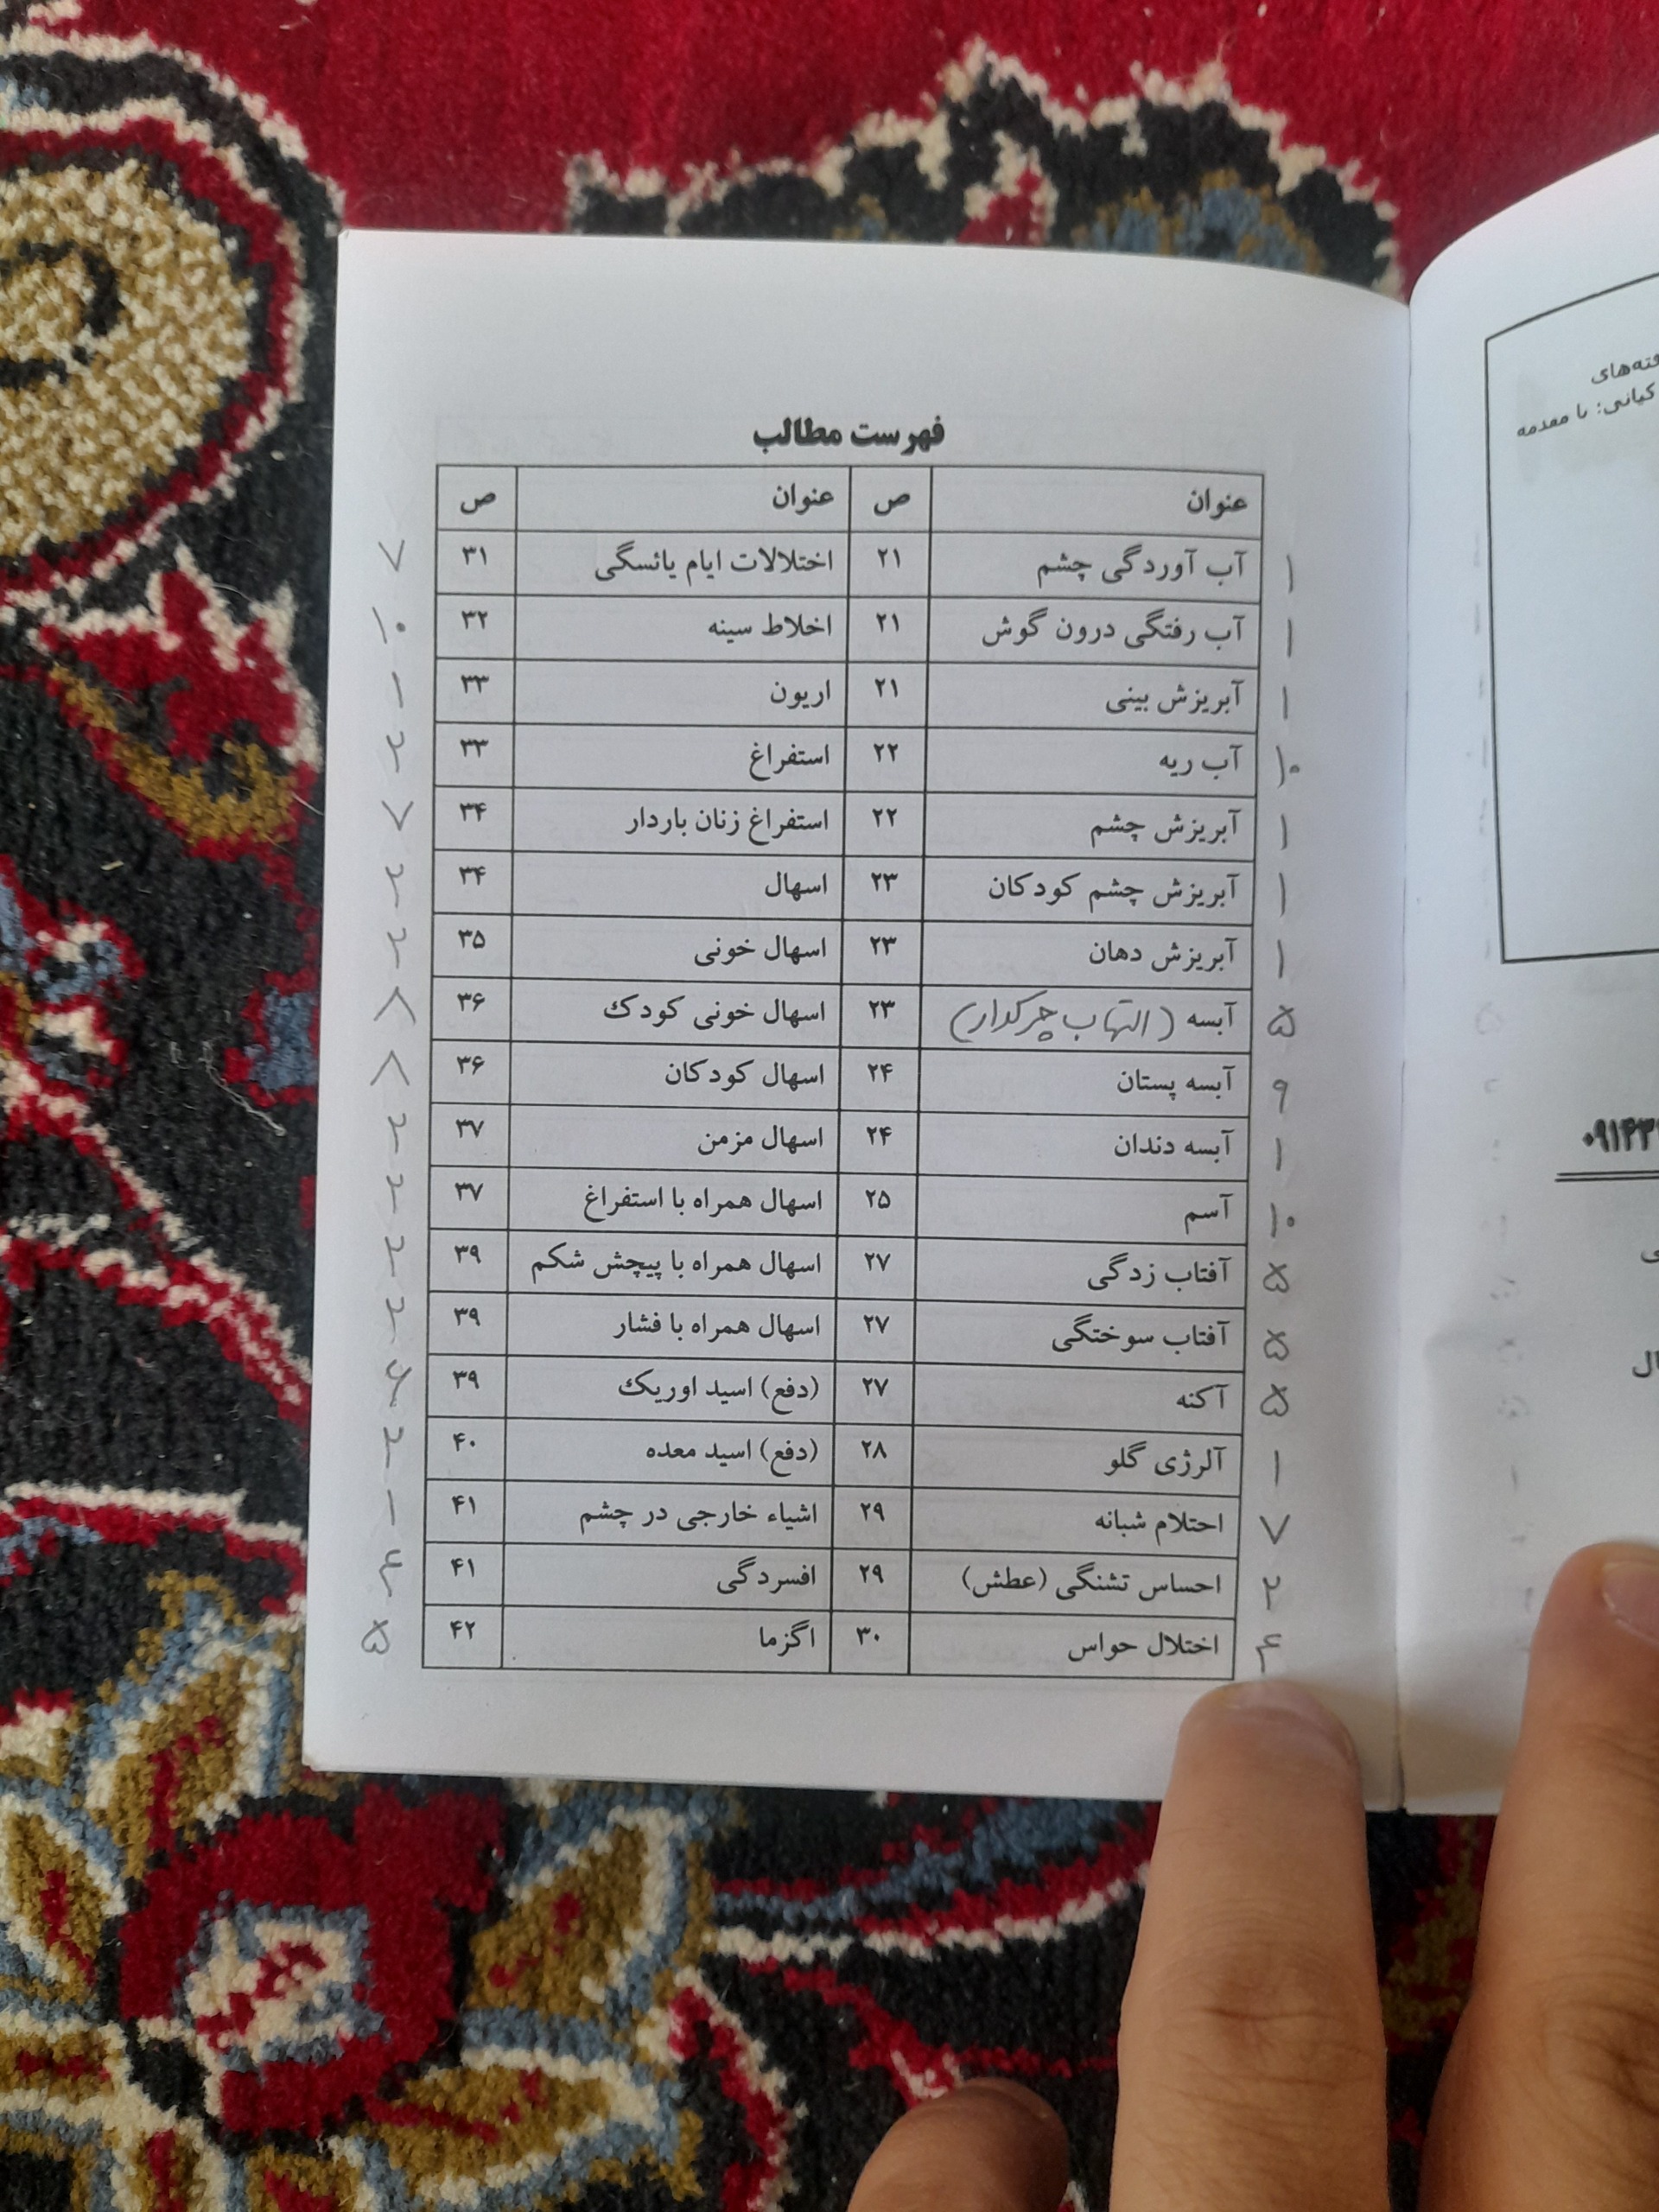 فهرست مطالب
عنوان ص عنوان ص
۱ آب آوردگی چشم ۲۱ اختلالات ایام یائسگی ۳۱ ۷
۱ آب رفتگی درون گوش ۲۱ اخلاط سینه ۳۲ ۱۰
۱ آبریزش بینی ۲۱ اریون ۳۳ ۱
۱۰ آب ریه ۲۲ استفراغ ۳۳ ۲
۱ آبریزش چشم ۲۲ استفراغ زنان باردار ۳۴ ۷
۱ آبریزش چشم کودکان ۲۳ اسهال ۳۴ ۲
۱ آبریزش دهان ۲۳ اسهال خونی ۳۵ ۲
۵ آبسه (التهاب چرکدار) ۲۳ اسهال خونی کودک ۳۶ ۸
۹ آبسه پستان ۲۴ اسهال کودکان ۳۶ ۸
۱ آبسه دندان ۲۴ اسهال مزمن ۳۷ ۲
۱۰ آسم ۲۵ اسهال همراه با استفراغ ۳۷ ۲
۵ آفتاب زدگی ۲۷ اسهال همراه با پیچش شکم ۳۹ ۲
۵ آفتاب سوختگی ۲۷ اسهال همراه با فشار ۳۹ ۲
۵ آکنه ۲۷ (دفع) اسید اوریک ۳۹ ۶
۱ آلرژی گلو ۲۸ (دفع) اسید معده ۴۰ ۲
۷ احتلام شبانه ۲۹ اشیاء خارجی در چشم ۴۱ ۱
۲ احساس تشنگی (عطش) ۲۹ افسردگی ۴۱ ۴
۴ اختلال حواس ۳۰ اگزما ۴۲ ۵
کیانی: با مقدمه